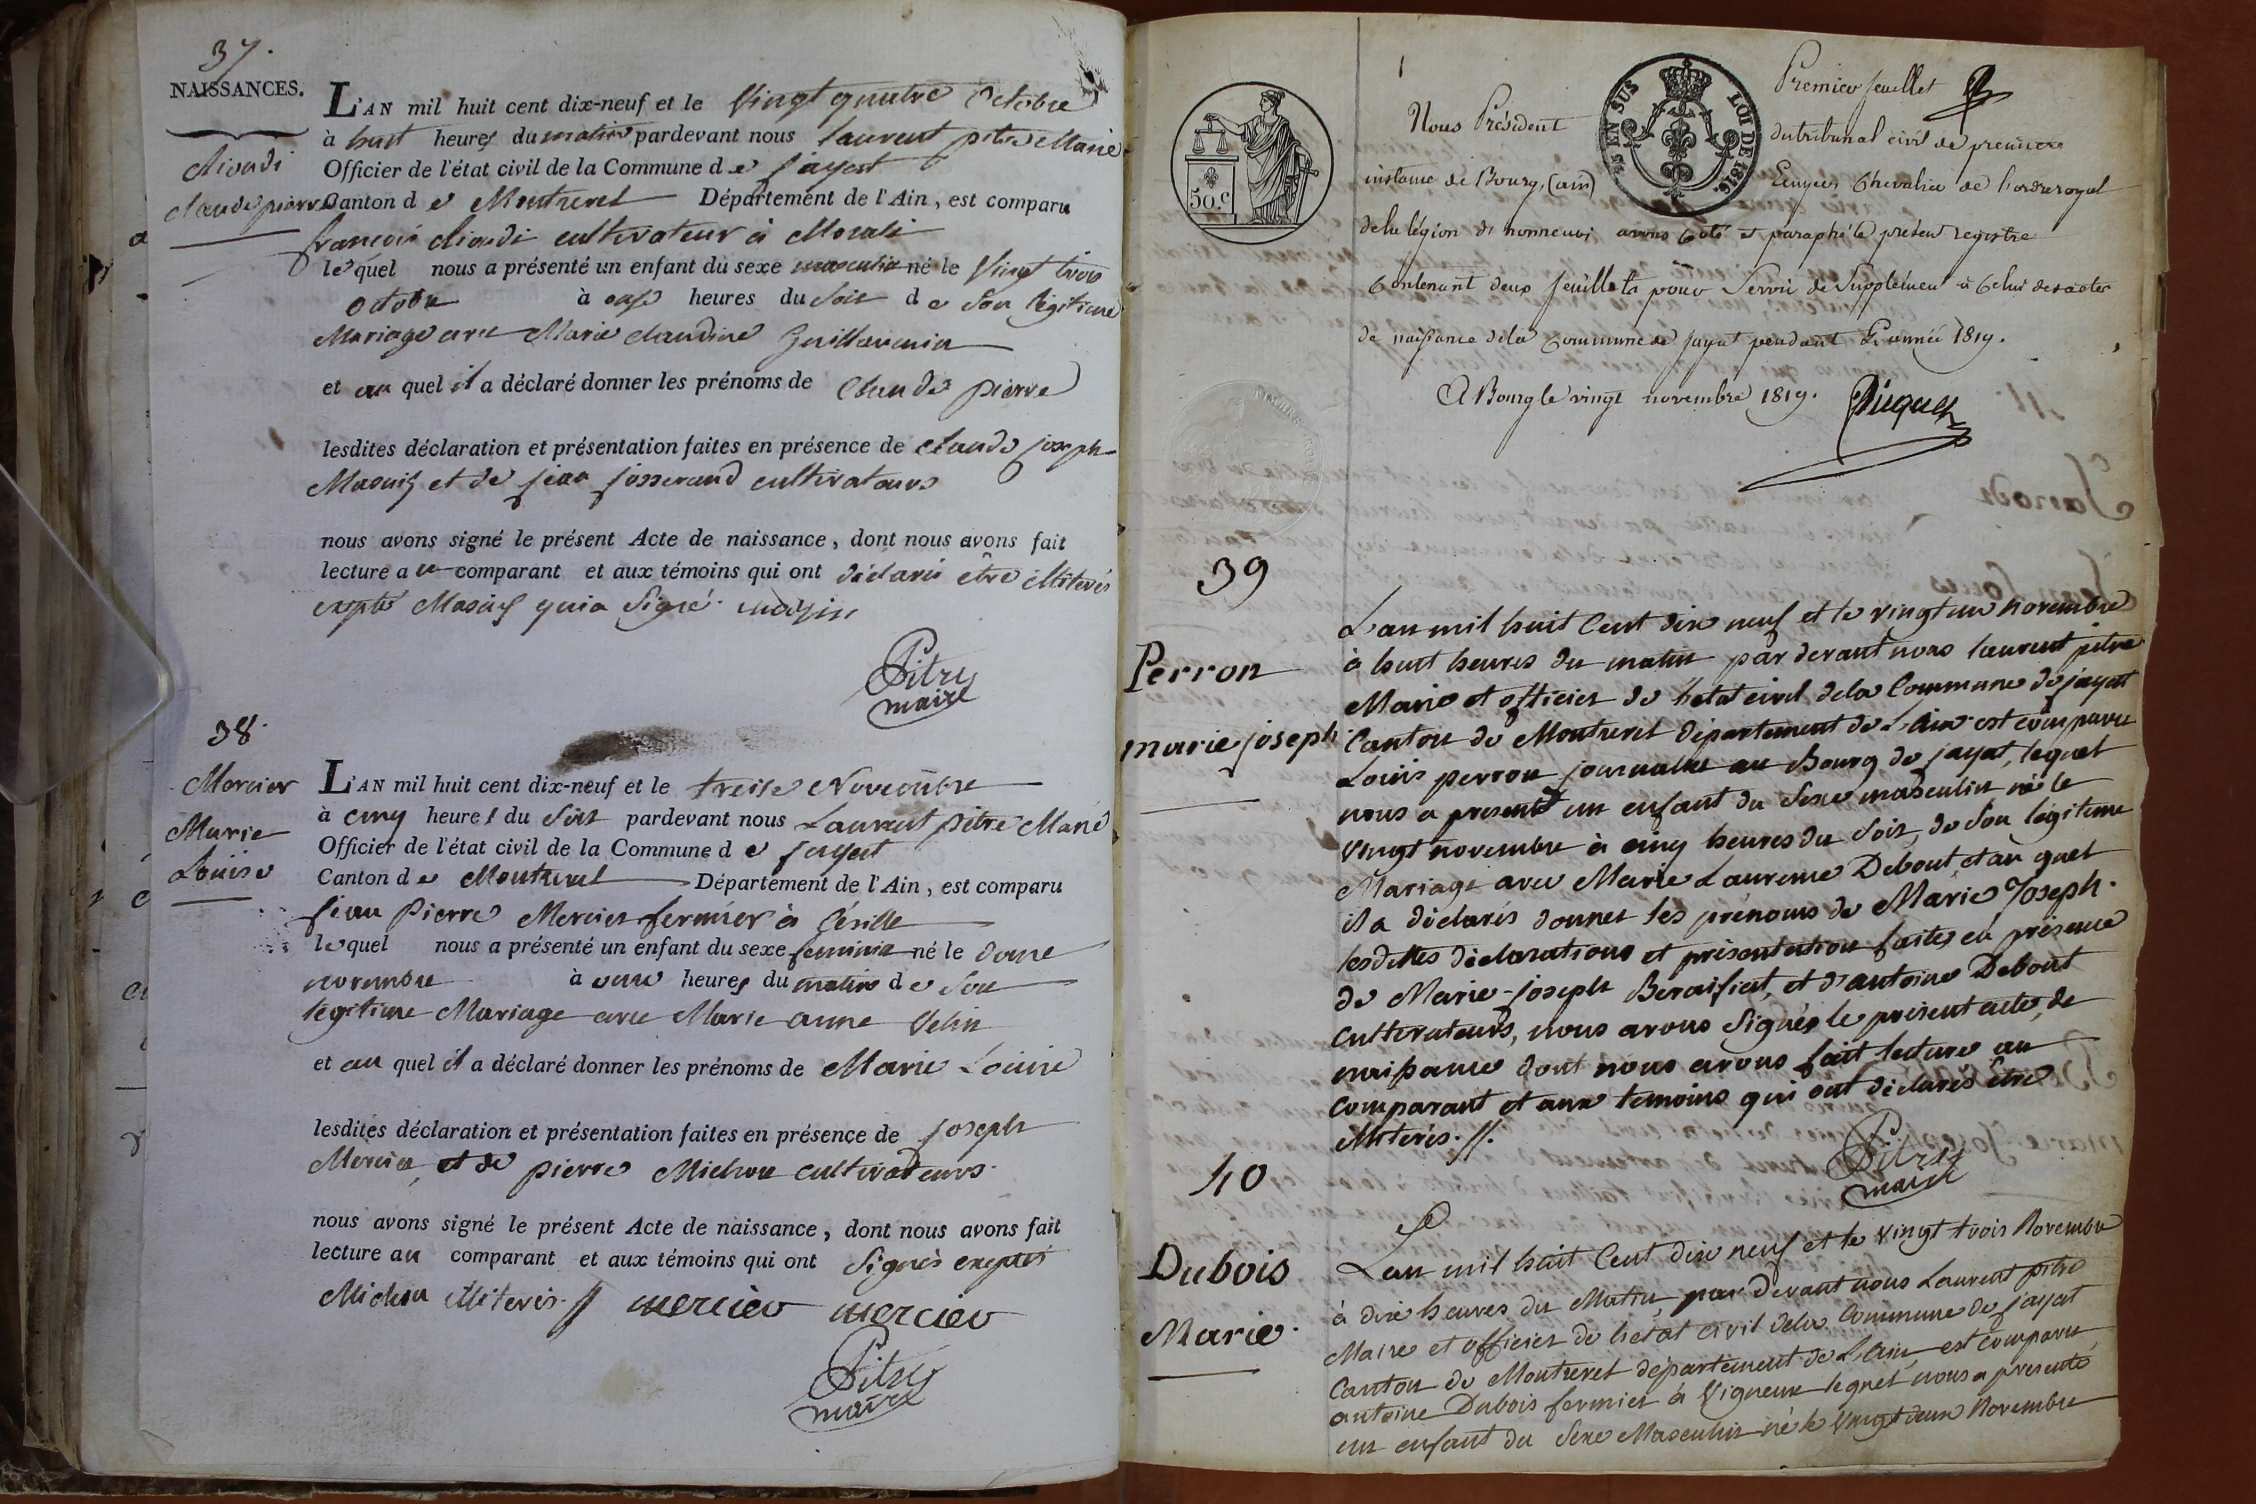 37.
NAISSANCES.
claude pierre
L'AN mil huit cent dix-neuf et le Vingt quatre Octobre
à huit heures du matin pardevant nous Laurent pitre Marie
Officier de l'état civil de la Commune de jayat
Canton de Montrevel Département de l'Ain, est comparu
françois cultivateur à
lequel nous a présenté un enfant du sexe masculin né le Vingt trois
octobre à onze heures du Soir de Son légitime
Mariage avec Marie claudine Guillaumin
et au quel il a déclaré donner les prénoms de Claude pierre
lesdites déclaration et présentation faites en présence de claude joseph
et de jean josserand cultivateurs
nous avons signé le présent Acte de naissance, dont nous avons fait
lecture au comparant et aux témoins qui ont déclarés être illiterés
qui a Signé.
Pitre
maire
38.
Mercier
Marie
Louise
L'AN mil huit cent dix-neuf et le treise Novembre
à cinq heures du Soir pardevant nous Laurent pitre Marie
Officier de l'état civil de la Commune de jayat
Canton de Montrevel Département de l'Ain, est comparu
jean Pierre Mercier fermier à Cézille
lequel nous a présenté un enfant du sexe feminin né le douze
novembre à onze heures du matin de Son
legitime Mariage avec Marie anne Velin
et au quel il a déclaré donner les prénoms de Marie Louise
lesdites déclaration et présentation faites en présence de joseph
Mercier, et de pierre Michon cultivateurs.
nous avons signé le présent Acte de naissance, dont nous avons fait
lecture au comparant et aux témoins qui ont Signés exeptés
Michon illiteris. mercier mercier
Pitre
maire
Premier feuillet
50.C
EN SUS LOI DE 1816.
Nous Président du tribunal civil de premiere
instance de Bourg, (ain) Ecuyer Chevalier de l'ordre royal
de la légion d'honneur, avons Coté et paraphé le présent registre
Contenant deux feuillets pour Servir de Supplément à Celui des actes
de naissance de la commune de jayat pendant L'année 1819.
A Bourg le vingt novembre 1819. Piquet
39
Perron
marie joseph
L'an mil huit Cent dix neuf et le vingt un novembre
à huit heures du matin par devant nous laurent pitre
Maire et officier de l'etat civil de la Commune de jayat
Canton de Montrevel département de L'ain est comparu
Louis perron journalier au Bourg de jayat, lequel
nous a presenté un enfant du Sexe masculin né le
Vingt novembre à cinq heures du Soir, de Son légitime
Mariage avec Marie Laurence Debout, et au quel
il a déclarés donner les prénoms de Marie Joseph.
lesdittes déclarations et présentation faites en présence
de Marie-joseph et d'antoine Debout
cultivateurs, nous avons Signés le présent acte, de
naissance dont nous avons fait lecture au
comparant et aux temoins qui ont déclarés être
illiterés.
Pitre
maire
40
Dubois
Marie.
L'an mil huit Cent dix neuf et le vingt trois Novembre
à dix heures du Matin, par devant nous Laurent pitre
Maire et officier de l'etat civil de la Commune de jayat
Canton de Montrevel département de L'ain, est comparu
antoine Dubois fermier à Vigneux lequel nous a presenté
un enfant du Sexe Masculin né le Vingt deux Novembre